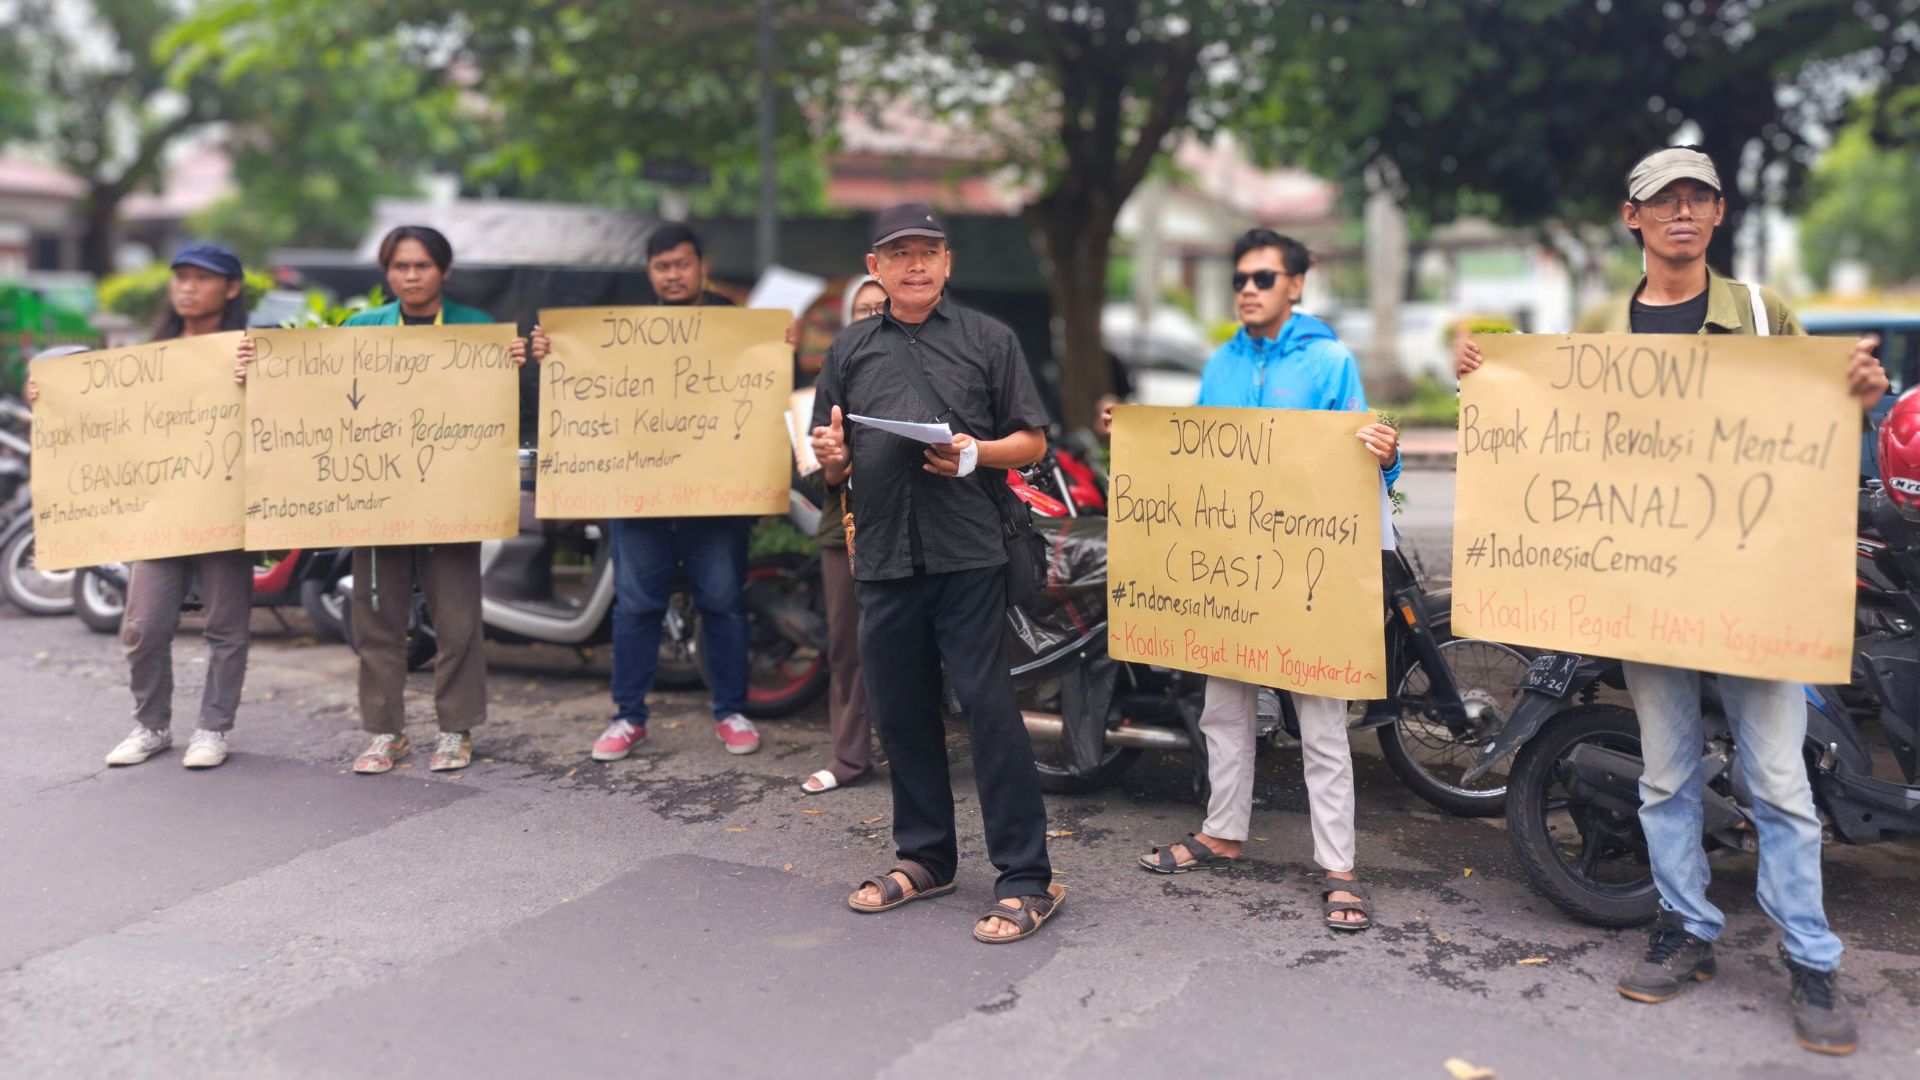 JOKOWI
Bapak Konflik Kepentingan
(BANGKOTAN)!
#IndonesiaMundur
~Koalisi Pegiat HAM Yogyakarta
Perilaku Keblinger JOKOWI
↓
Pelindung Menteri Perdagangan
BUSUK!
#IndonesiaMundur
~Koalisi Pegiat HAM Yogyakarta~
JOKOWI
Presiden Petugas
Dinasti Keluarga!
#IndonesiaMundur
~Koalisi Pegiat HAM Yogyakarta~
JOKOWI
Bapak Anti Reformasi
(BASI)!
#IndonesiaMundur
~Koalisi Pegiat HAM Yogyakarta~
JOKOWI
Bapak Anti Revolusi Mental
(BANAL)!
#IndonesiaCemas
~Koalisi Pegiat HAM Yogyakarta~